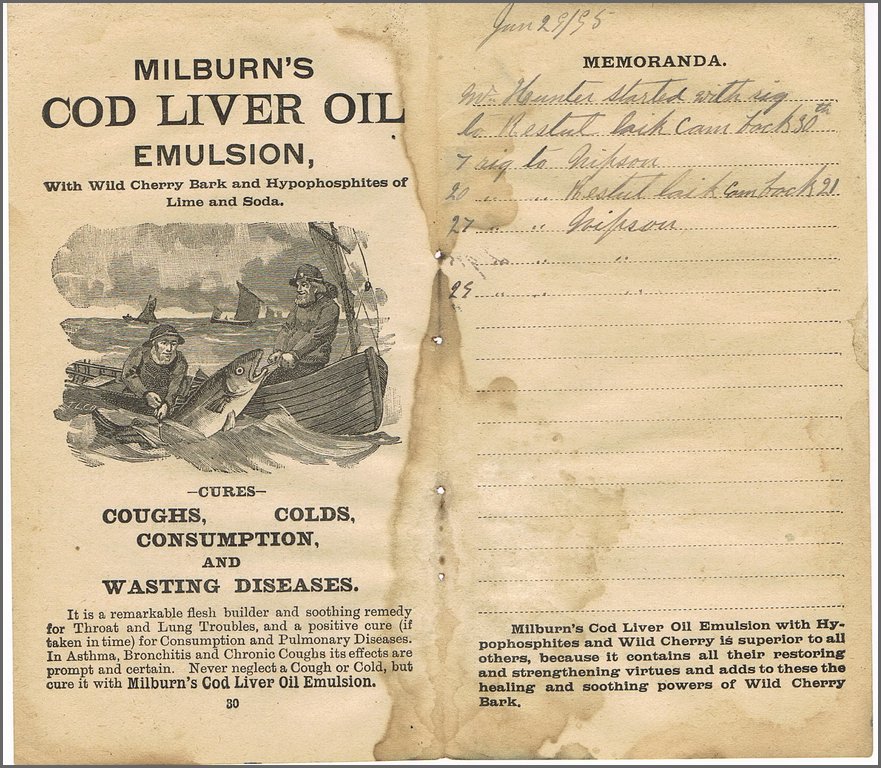 MILBURN'S
COD LIVER OIL
EMULSION,
With Wild Cherry Bark and Hypophosphites of
Lime and Soda.
—CURES—
COUGHS, COLDS,
CONSUMPTION,
AND
WASTING DISEASES.
It is a remarkable flesh builder and soothing remedy
for Throat and Lung Troubles, and a positive cure (if
taken in time) for Consumption and Pulmonary Diseases.
In Asthma, Bronchitis and Chronic Coughs its effects are
prompt and certain. Never neglect a Cough or Cold, but
cure it with Milburn's Cod Liver Oil Emulsion.
30
Jun 29/95
MEMORANDA.
Mr. Hunter started with rig
to laik Cam back 30th
7 rig to Nipson
20 " " laik Cam back 21
27 " " Nipson
" "
29 " " "
Milburn's Cod Liver Oil Emulsion with Hy-
pophosphites and Wild Cherry is superior to all
others, because it contains all their restoring
and strengthening virtues and adds to these the
healing and soothing powers of Wild Cherry
Bark.